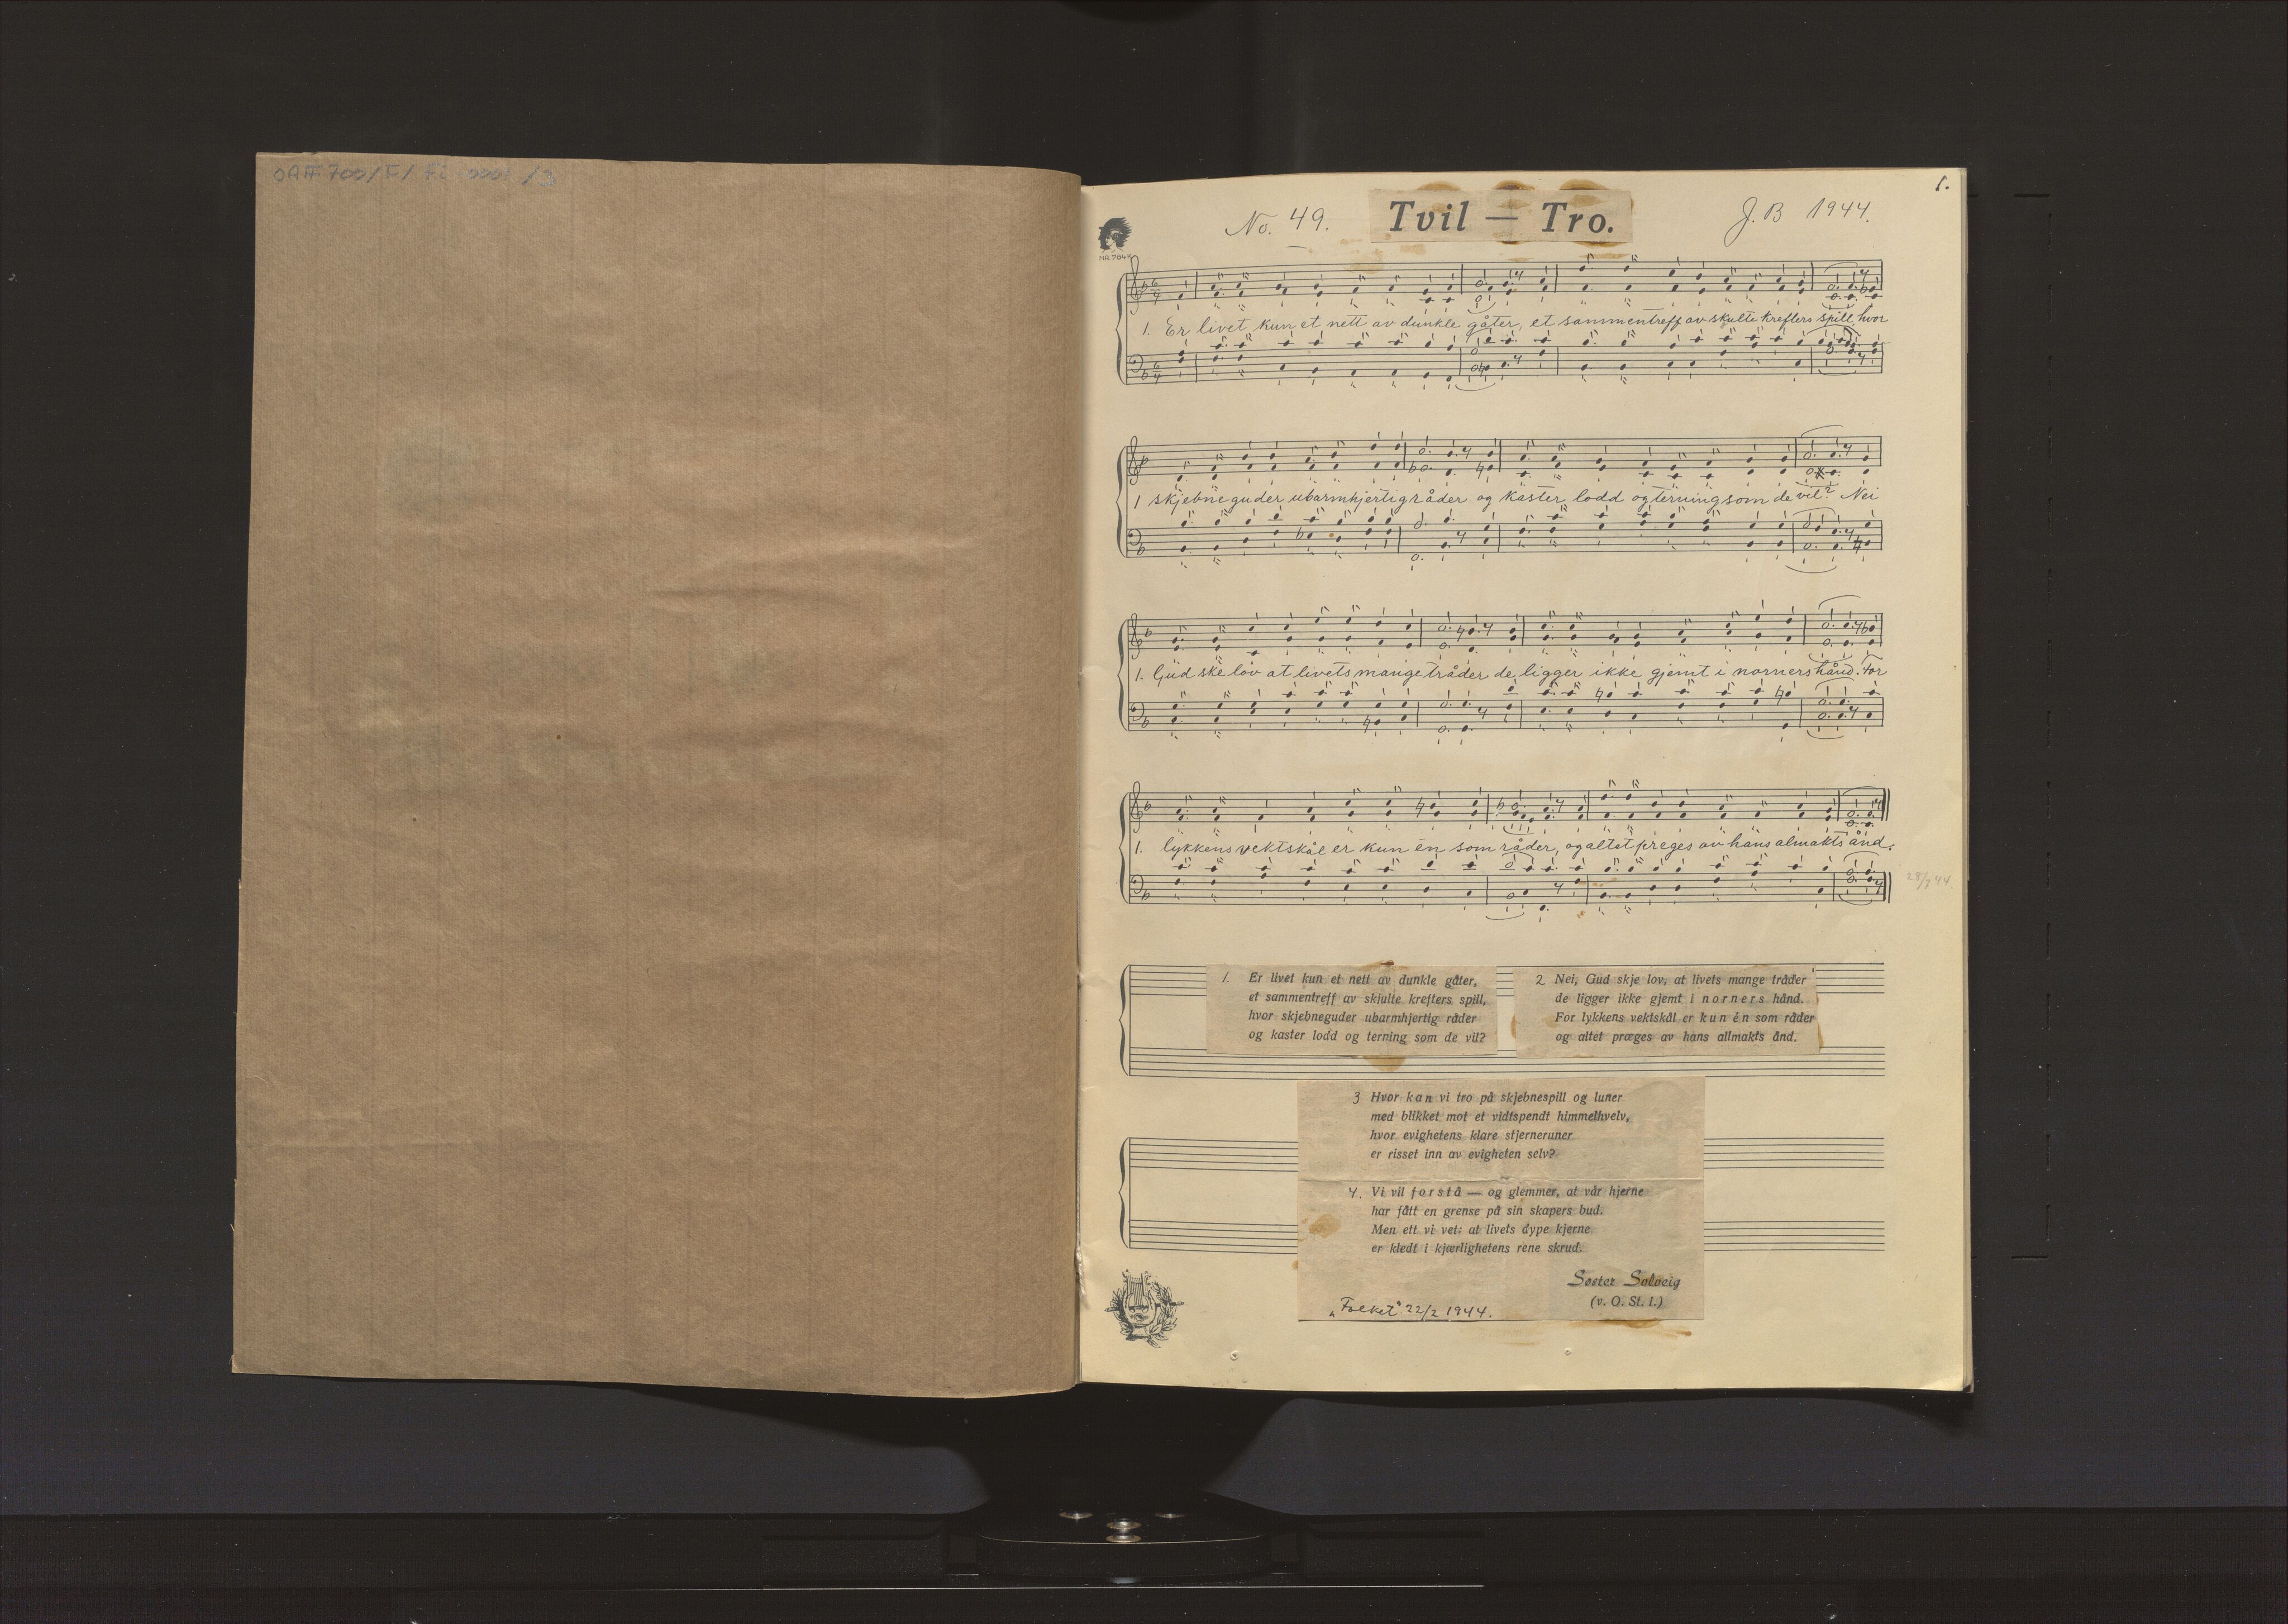 OAFF 700/F/ Fi 0001 /3
1.
No. 49.
Tvil — Tro.
J.B 1944.
NR. 704
1. Er livet kun et nett av dunkle gåter, et sammentreff av skulte krefters spill, hvor
1 skjebneguder ubarmhjertig råder og kaster lodd og terning som de vil? Nei
1. Gud ske lov at livets mange tråder de ligger ikke gjemt i norners hånd. For
1. lykkens vektskål er kun én som råder, og altet preges av hans almakts ånd.
28/7 44
1. Er livet kun et nett av dunkle gåter,
et sammentreff av skjulte krefters spill,
hvor skjebneguder ubarmhjertig råder
og kaster lodd og terning som de vil?
2 Nei, Gud skje lov, at livets mange tråder
de ligger ikke gjemt i norners hånd.
For lykkens vektskål er kun én som råder
og altet præges av hans allmakts ånd.
3 Hvor kan vi tro på skjebnespill og luner
med blikket mot et vidtspendt himmelhvelv,
hvor evighetens klare stjerneruner
er risset inn av evigheten selv?
4. Vi vil forstå — og glemmer, at vår hjerne
har fått en grense på sin skapers bud.
Men ett vi vet: at livets dype kjerne
er kledt i kjærlighetens rene skrud.
Søster Solveig
(v. O. St. l.)
„Folket" 22/2 1944.